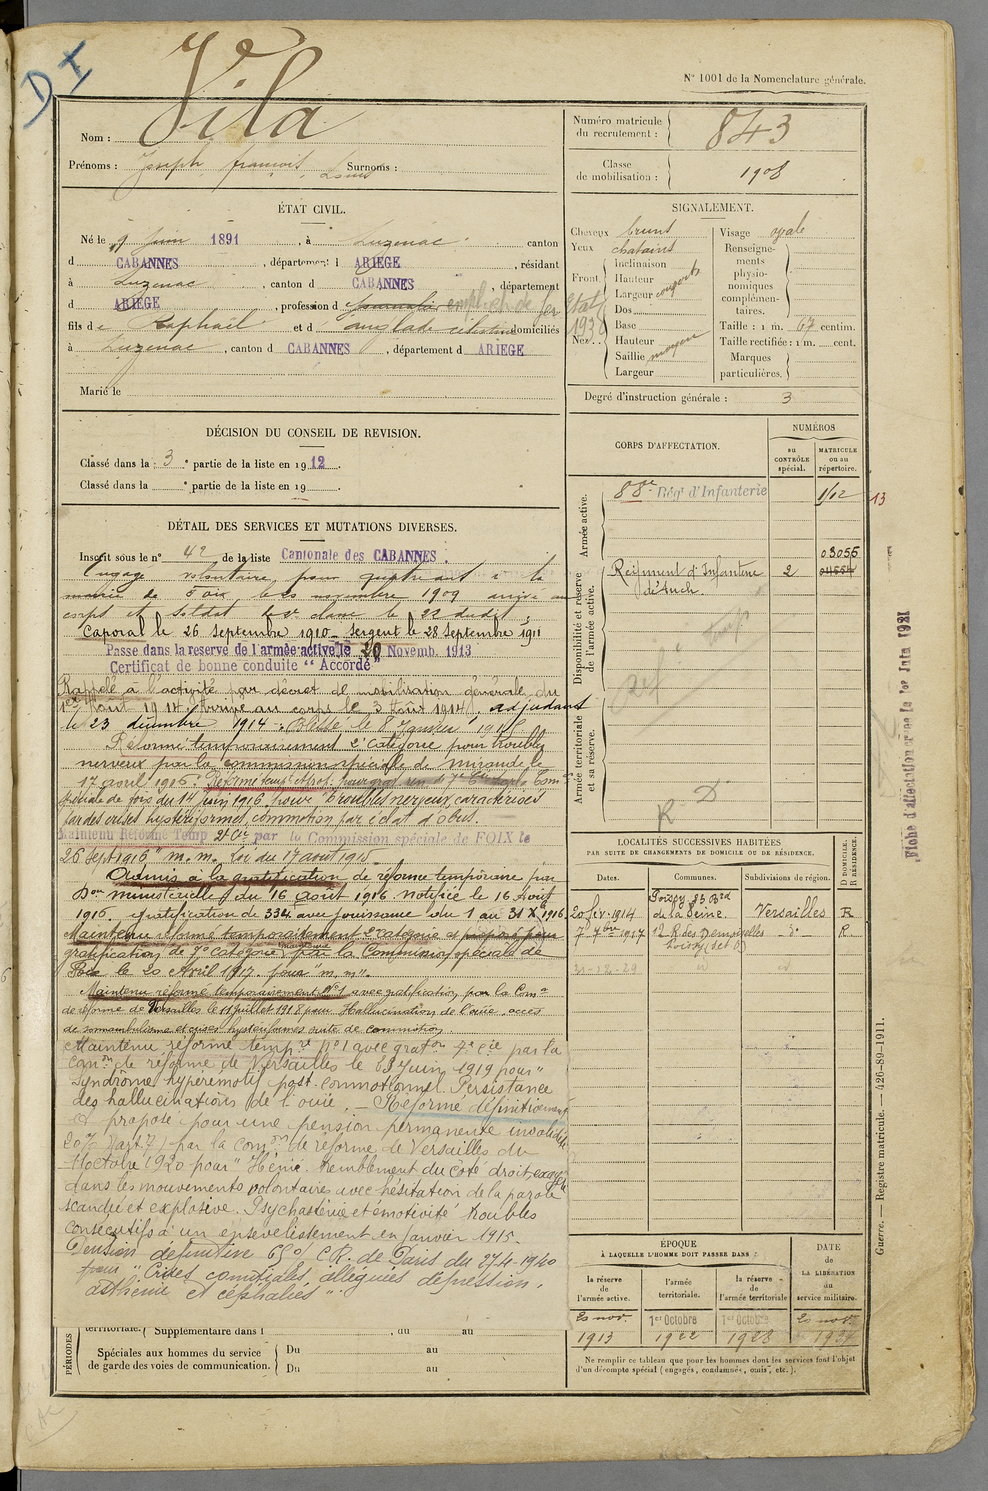 D I
N° 1001 de la Nomenclature générale.
Nom : Vila
Prénoms : Joseph, françois, Louis Surnoms :
ÉTAT CIVIL.
Né le 9 juin 1891, à Luzenac canton
d CABANNES, département d ARIEGE, résidant
à Luzenac, canton d CABANNES, département
d ARIEGE, profession d employé ch. de fer
Etat
1932
fils de Raphaël et d'anglade célestine domiciliés
à Luzenac, canton d CABANNES, département d ARIEGE
Marié le
DÉCISION DU CONSEIL DE REVISION.
Classé dans la 3e partie de la liste en 1912.
Classé dans la e partie de la liste en 19 .
DÉTAIL DES SERVICES ET MUTATIONS DIVERSES.
Inscrit sous le n° 42 de la liste Cantonale des CABANNES.
Engagé volontaire pour quatre ans à la
mairie de Foix le novembre 1909 arrivé au
corps et soldat de 2e classe le 22 dudit
Caporal le 26 septembre 1910 - Sergent le 28 septembre 1911
Passé dans la réserve de l'armée active le 20 Novemb. 1913
Certificat de bonne conduite "Accordé"
Rappelé à l'activité par décret de mobilisation générale du
1er Août 1914. Arrivé au corps le 3 Août 1914. adjudant
le 23 décembre 1914 - Blessé le 8 Janvier 1915
Réformé temporairement 2e catégorie pour troubles
nerveux par la commission spéciale de Mirande le
17 avril 1916.
spéciale de foix du 14 juin 1916 pour "troubles nerveux caractérisés
par des crises hystériformes, commotion par éclat d'obus.
Maintenu Réformé Temp 2e Cie par la Commission spéciale de FOIX le
26 Sept 1916 "m. m. Loi du 17 août 1915
Admis à la gratification de réforme temporaire par
Don ministérielle du 16 août 1916 notifiée le 16 Août
1916. gratification de 334 avec jouissance du 1 au 31 Xbre 1916
Maintenu réformé temporairement 2e catégorie et proposé pour
gratification de 7e catégorie par la Commission spéciale de
Foix le 20 Avril 1917. pour "m. m".
Maintenu réformé temporairement N°1 avec gratification par la Comon
de réforme de Versailles le 11 juillet 1918 pour Hallucination de l'ouïe, accès
de somnambulisme et crises hystériformes suite de commotion.
Maintenu réformé tempre n°1 avec graton 7e cie par la
Comon de réforme de Versailles le Juin 1919 pour "
Syndrôme hyperémotif post-commotionnel. Persistance
des hallucinations de l'ouïe. Réformé définitivement
et proposé pour une pension permanente invalidité
20% par la comon de réforme de Versailles du
octobre 1920 pour tremblement du côté droit, exagéré
dans les mouvements volontaires avec hésitation de la parole
scandée et explosive. Psychasténie et émotivité troubles
consécutifs à un ensevelissement en Janvier 1915.
Pension définitive 65% C.R. de Paris du 27-4-1920
pour "Crises comitiales alléguées dépression,
asthénie et céphalées".
territoriale. Supplémentaire dans l , du au
PÉRIODES
Spéciales aux hommes du service
de garde des voies de communication.
Du au
Du au
Numéro matricule
du recrutement : 843
Classe
de mobilisation : 1908
SIGNALEMENT.
Cheveux bruns
Yeux chatains
Front
Inclinaison
Hauteur
Largeur
Nez
Dos
Base
Hauteur
Saillie moyenne
Largeur
Visage ovale
Renseigne-
ments
physio-
nomiques
complémen-
taires.
Taille : 1 m. 67 centim.
Taille rectifiée : 1 m. cent.
Marques
particulières.
Degré d'instruction générale : 3
CORPS D'AFFECTATION.
NUMÉROS
au
CONTRÔLE
spécial.
MATRICULE
ou au
répertoire.
Armée active.
88e Rég't d'Infanterie 1/12
13
Disponibilité et réserve
de l'armée active.
03055
Régiment d'Infanterie 2
d'Auch.
Armée territoriale
et sa réserve.
R D
LOCALITÉS SUCCESSIVES HABITÉES
PAR SUITE DE CHANGEMENTS DE DOMICILE OU DE RÉSIDENCE.
Dates.
Communes.
Subdivisions de région.
D DOMICILE.
R RÉSIDENCE.
20 fév. 1914 Poissy 23 Brd
de la Seine. Versailles R
7 7bre 1917 12 R des Demoiselles
Poissy (Set O) d° R
31-12-29
Fiche d'affectation créée le 1er Juin 1921
Guerre. — Registre matricule. — 426-89-1911.
ÉPOQUE
À LAQUELLE L'HOMME DOIT PASSER DANS :
DATE
de
LA LIBÉRATION
du
service militaire.
la réserve
de
l'armée active.
l'armée
territoriale.
la réserve
de
l'armée territoriale
20 nov. 1er Octobre 1er Octobre 20 nov.
1913 1922 1928 1937
Ne remplir ce tableau que pour les hommes dont les services font l'objet
d'un décompte spécial (engagés, condamnés, omis, etc.).